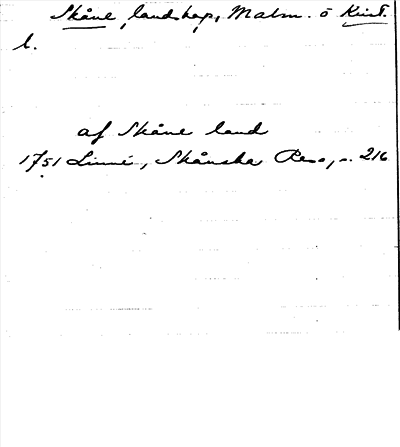 Skåne, landskap, Malm. o Krist.
l.
af Skåne land
1751 Linné, Skånska Resa, s. 216